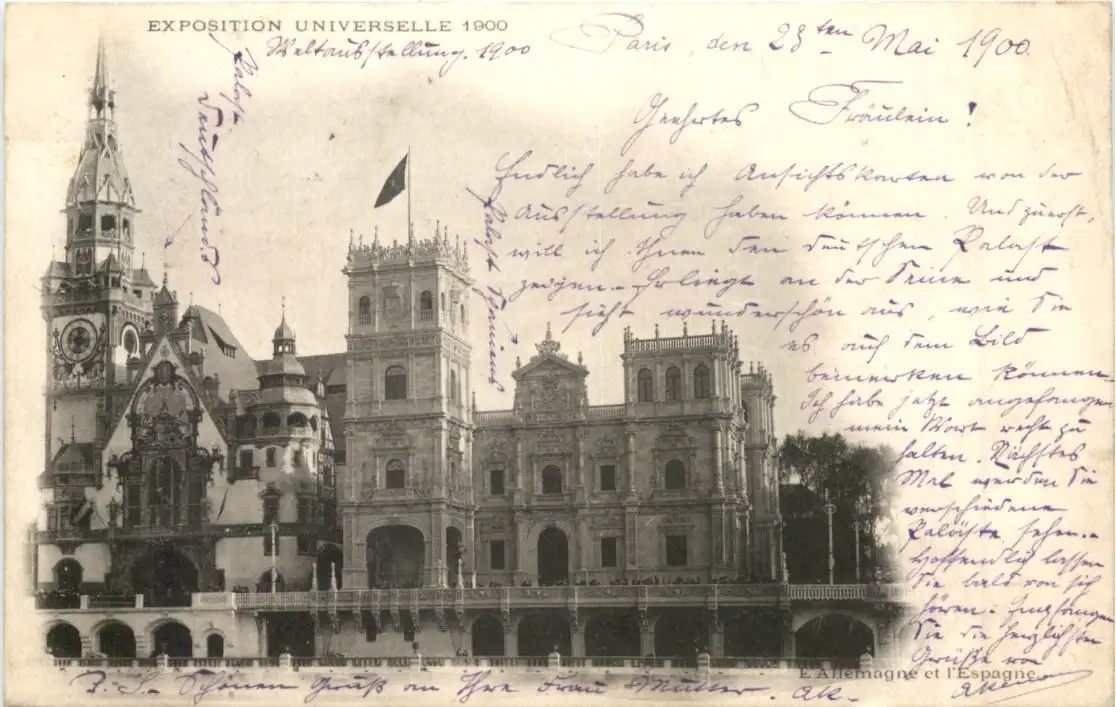 EXPOSITION UNIVERSELLE 1900
Weltausstellung. 1900
Paris, den 28ten Mai 1900.
Palast
Deutschlands
Palast Spaniens
Geehrtes Fräulein!
Endlich habe ich Ansichtskarten von der
Ausstellung haben können. Und zuerst,
will ich Ihnen den deutschen Palast
zeigen. - Er liegt an der Seine und
sieht wunderschön aus, wie Sie
es auf dem Bild
bemerken können.
Ich habe jetzt angefangen
mein Wort recht zu
halten. Nächstes
Mal werden Sie
verschiedene
Paläste sehen. -
Hoffendlich lassen
Sie bald von sich
hören. - Empfangen
Sie die herzlichsten
Grüße von
P.S. - Schönen Gruß an Ihre Frau Mutter.
E Allemagne et l'Espagne